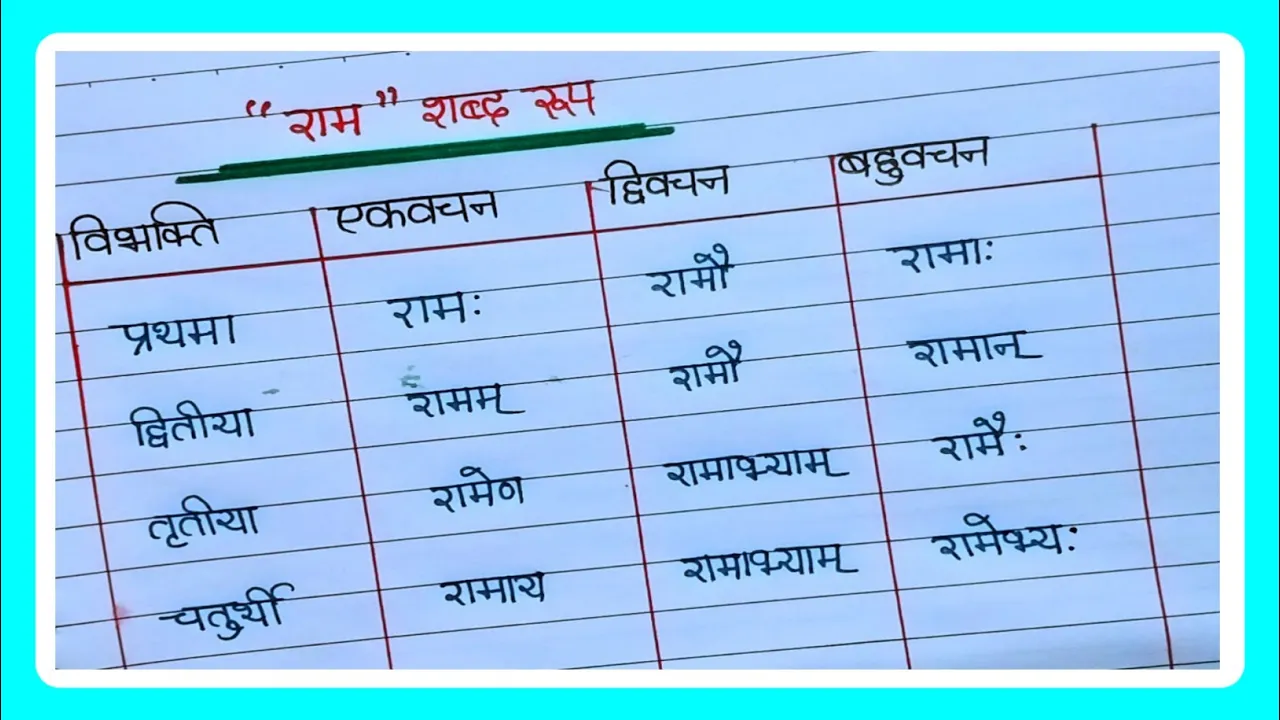 “राम” शब्द रूप
विभक्ति एकवचन द्विवचन बहुवचन
प्रथमा रामः रामौ रामाः
द्वितीया रामम् रामौ रामान्
तृतीया रामेण रामाभ्याम् रामैः
चतुर्थी रामाय रामाभ्याम् रामेभ्यः